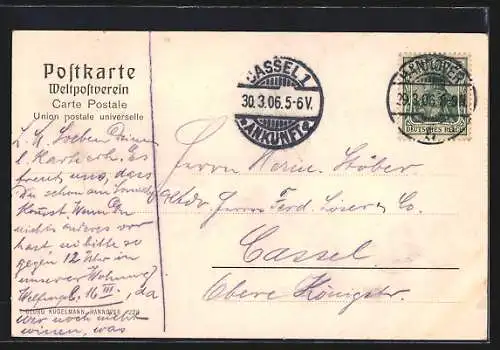 Postkarte
Weltpostverein
Carte Postale
Union postale universelle
L. H. Soeben Deine
l. Karte erh. Es
freut uns, dass
Du schon am Sonntag
kommst. Wenn Du
nichts anderes vor
hast so bitte so
gegen 12 Uhr in
unserer Wohnung,
16 III., da
wir noch nicht
wissen, was
GEORG KUGELMANN, HANNOVER
CASSEL 1
30.3.06.5-6V.
ANKUNFT
HANNOVER
29.3.06.
DEUTSCHES REICH
Herrn Herm. Stöber
Adr. Herrn Ferd. & Co.
Cassel
Obere Königstr.